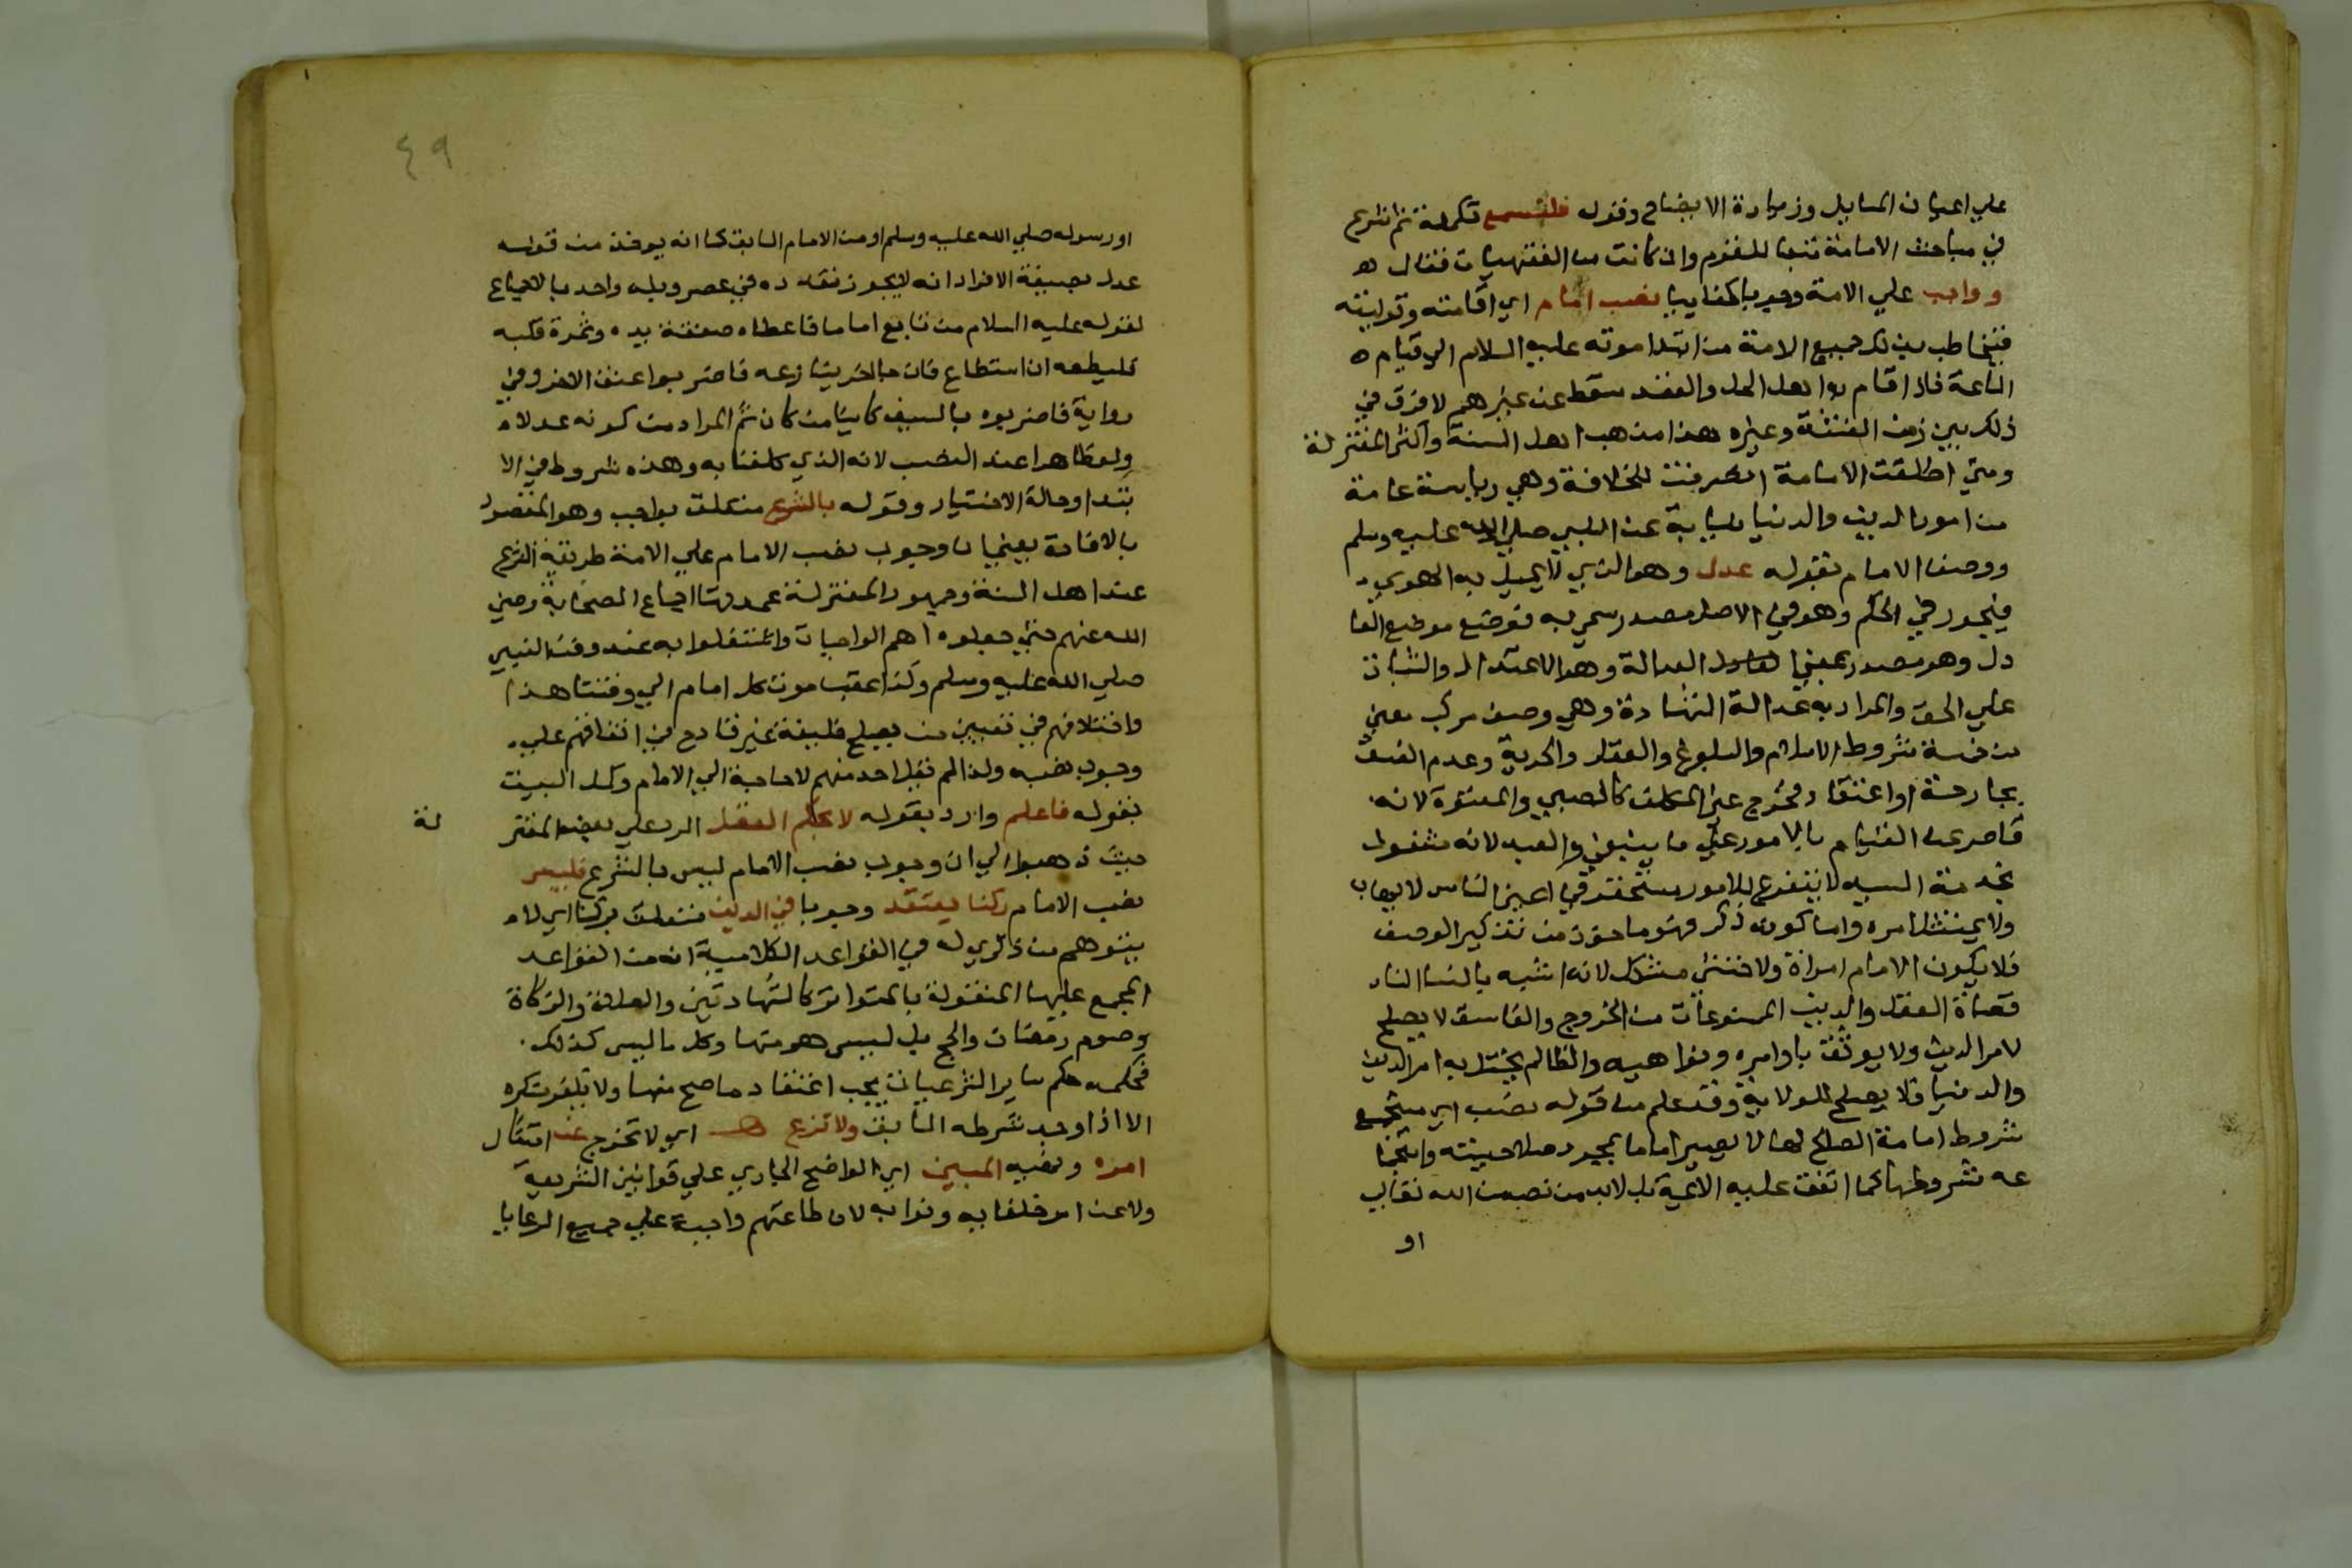 علي اعيان المسايل وزيادة الايضاح وقوله فلتسمع تكملة ثم شرع
في مباحث الامامة تبعا للقوم وان كانت من الفقهيات فقال هـ
وواجب علي الامة وجوبا كفاييا نصب امام اي اقامته وتوليته
فيخاطب بذلك جميع الامة من ابتدا موته عليه السلام الي قيام ه
الساعة فاذا قام به اهل الحل والعقد سقط عن غيرهم لا فرق في
ذلك بين زمن الفتنة وغيره هذا مذهب اهل السنة واكثر المعتزلة
ومتي اطلقت الامامة انصرفت للخلافة وهي رياسة عامة
من امور الدين والدنيا نيابة عن النبي صلي الله عليه وسلم
ووصف الامام بقوله عدل وهو الذي لا يميل به الهوي
فيجور في الحكم وهو في الاصل مصدر سمي به فوضع موضع العا
دل وهو مصدر بمعني العدالة وهو الاعتدال والثبات
علي الحق والمراد به عدالة الشهادة وهي وصف مركب معني
من خمسة شروط الاسلام والبلوغ والعقل والحرية وعدم الفسق
بجارحة او اعتقاد فخرج غير المكلف كالصبي والمعتوه لانه
قاصر عن القيام بالامور علي ما ينبغي والعبد لانه مشغول
بخدمة السيد لا يتفرغ للامور مستحقر في اعين الناس لا يهاب
ولا يمتثل امره واما كونه ذكر فهو ماخوذ من تذكير الوصف
فلا يكون الامام امراة ولا خنثي مشكل لانه اشبه بالنسا الناد
قصات العقل والدين الممنوعات من الخروج والفاسق لا يصلح
لامر الدين ولا يوثق باوامره ونواهيه والظالم يختل به امر الدين
والدنيا فلا يصلح للولاية وقد علم من قوله نصب اي مستجمع
شروط امامة الصالح لها لا يصير اماما بمجرد صلاحيته واستجما
عه شروطها كما اتفق عليه الايمة بل لابد من نصب من الله تعالي
او
٤٩
او رسوله صلي الله عليه وسلم او من الامام السابق كما انه يوخذ من قوله
عدل بصيغة الافراد انه لا يجوز تعدده في عصر وبلد واحد بالاجماع
لقوله عليه السلام من بايع اماما فاعطاه صفقة يده وثمرة قلبه
فليطعه ان استطاع فان جا اخر ينازعه فاضربوا عنق الاخر وفي
رواية فاضربوه بالسيف كاينا من كان ثم المراد من كونه عدلا ه
ولو ظاهرا عند النصب لانه الذي كلفنا به وهذه شروط في الا
بتدا وحالة الاختيار وقوله بالشرع متعلق بواجب وهو المقصود
بالافادة يعني ان وجوب نصب الامام علي الامة طريقه الشرع
عند اهل السنة وجمهور المعتزلة عمدوتها اجماع الصحابة رضي
الله عنهم حتي جعلوه اهم الواجبات واشتغلوا به عند وفت النبي
صلي الله عليه وسلم وكذا عقب موت كل امام الي وقتنا هذا
واختلافهم في تعيين من يصلح خليفة غير قادح في اتفاقهم علي
وجوب نصبه ولذا لم يقل احد منهم لا حاجة الي الامام وكمل البيت
بقوله فاعلم وارد بقوله لا بحكم العقل الرد علي بعض المعتز
لة
حيث ذهبوا الي ان وجوب نصب الامام ليس بالشرع فليس
نصب الامام ركنا يعتقد وجوبا في الدين متعلق بركنا اي لا ه
يتوهم من ذكري له في القواعد الكلامية انه من القواعد
المجمع عليها المنقولة بالتواتر كالشهادتين والصلاة والزكاة
وصوم رمضان والحج بل ليس هو منها وكل ما ليس كذلك
فحكمه حكم ساير الشرعيات يجب اعتقاد ما صح منها ولا يكفر منكره
الا اذا وجد شرطه السابق ولا تزغ اي لا تخرج عن امتثال
امره ونهيه المبين اي الواضح الجاري علي قوانين الشريعة
ولا عن امر خلفايه ونوابه لان طاعتهم واجبة علي جميع الرعايا